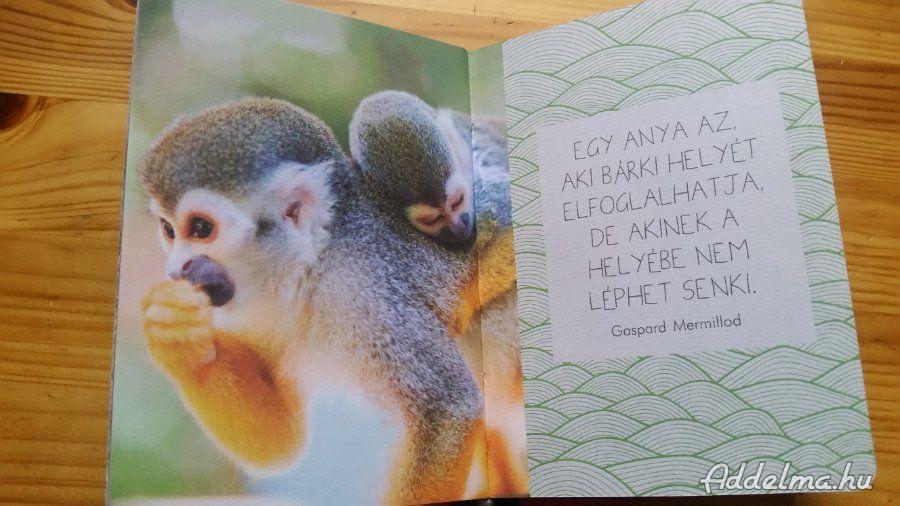 EGY ANYA AZ,
AKI BÁRKI HELYÉT
ELFOGLALHATJA,
DE AKINEK A
HELYÉBE NEM
LÉPHET SENKI.
Gaspard Mermillod
Addelma.hu